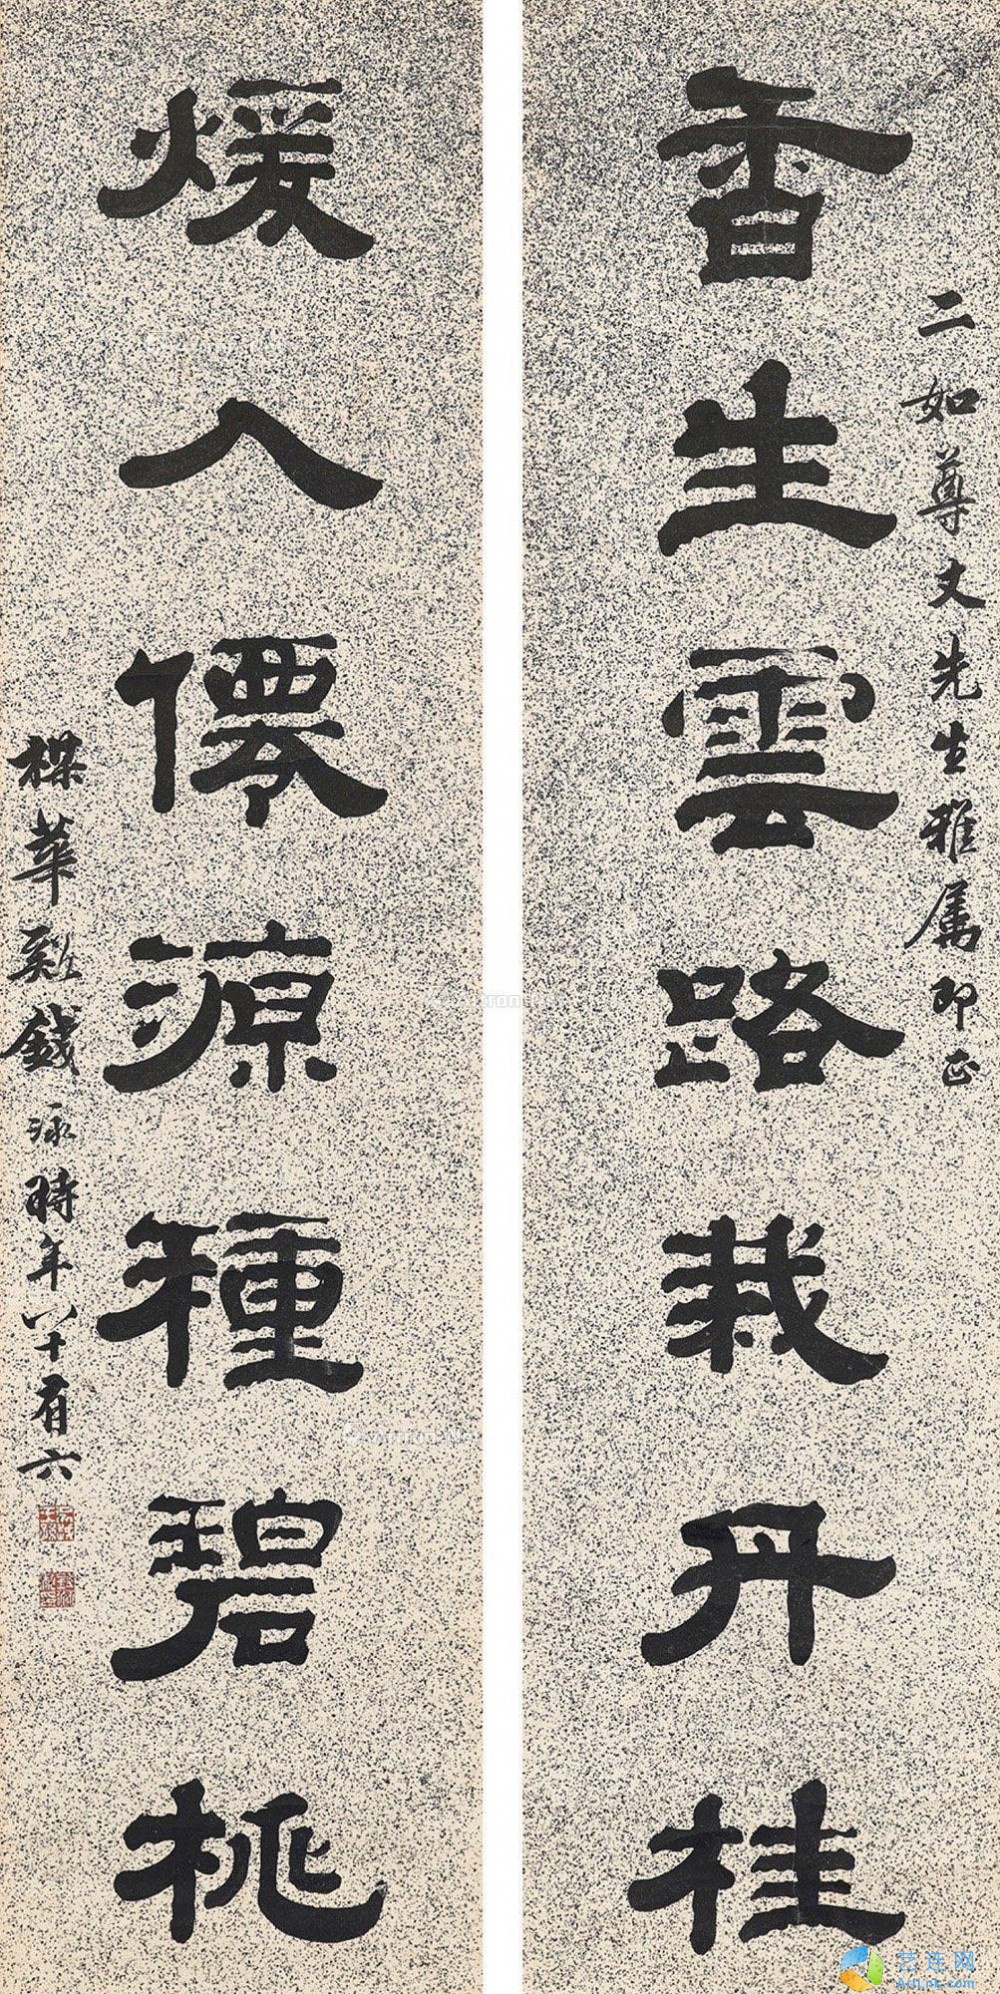 香生雲路栽丹桂
二如尊丈先生雅属即正
煖入僊源種碧桃
楳華谿錢泳時年八十有六
艺连网